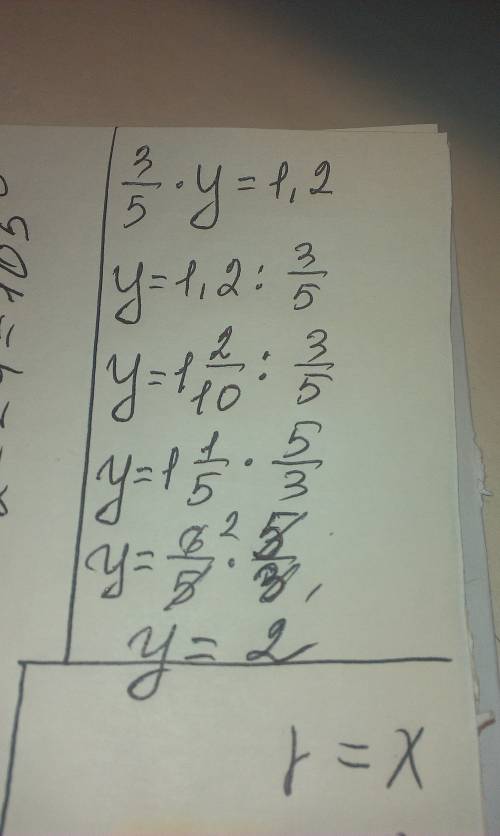 3/5 · y = 1,2
y = 1,2 : 3/5
y = 1 2/10 : 3/5
y = 1 1/5 · 5/3
y = 6 2/5 · 5/3
y = 2